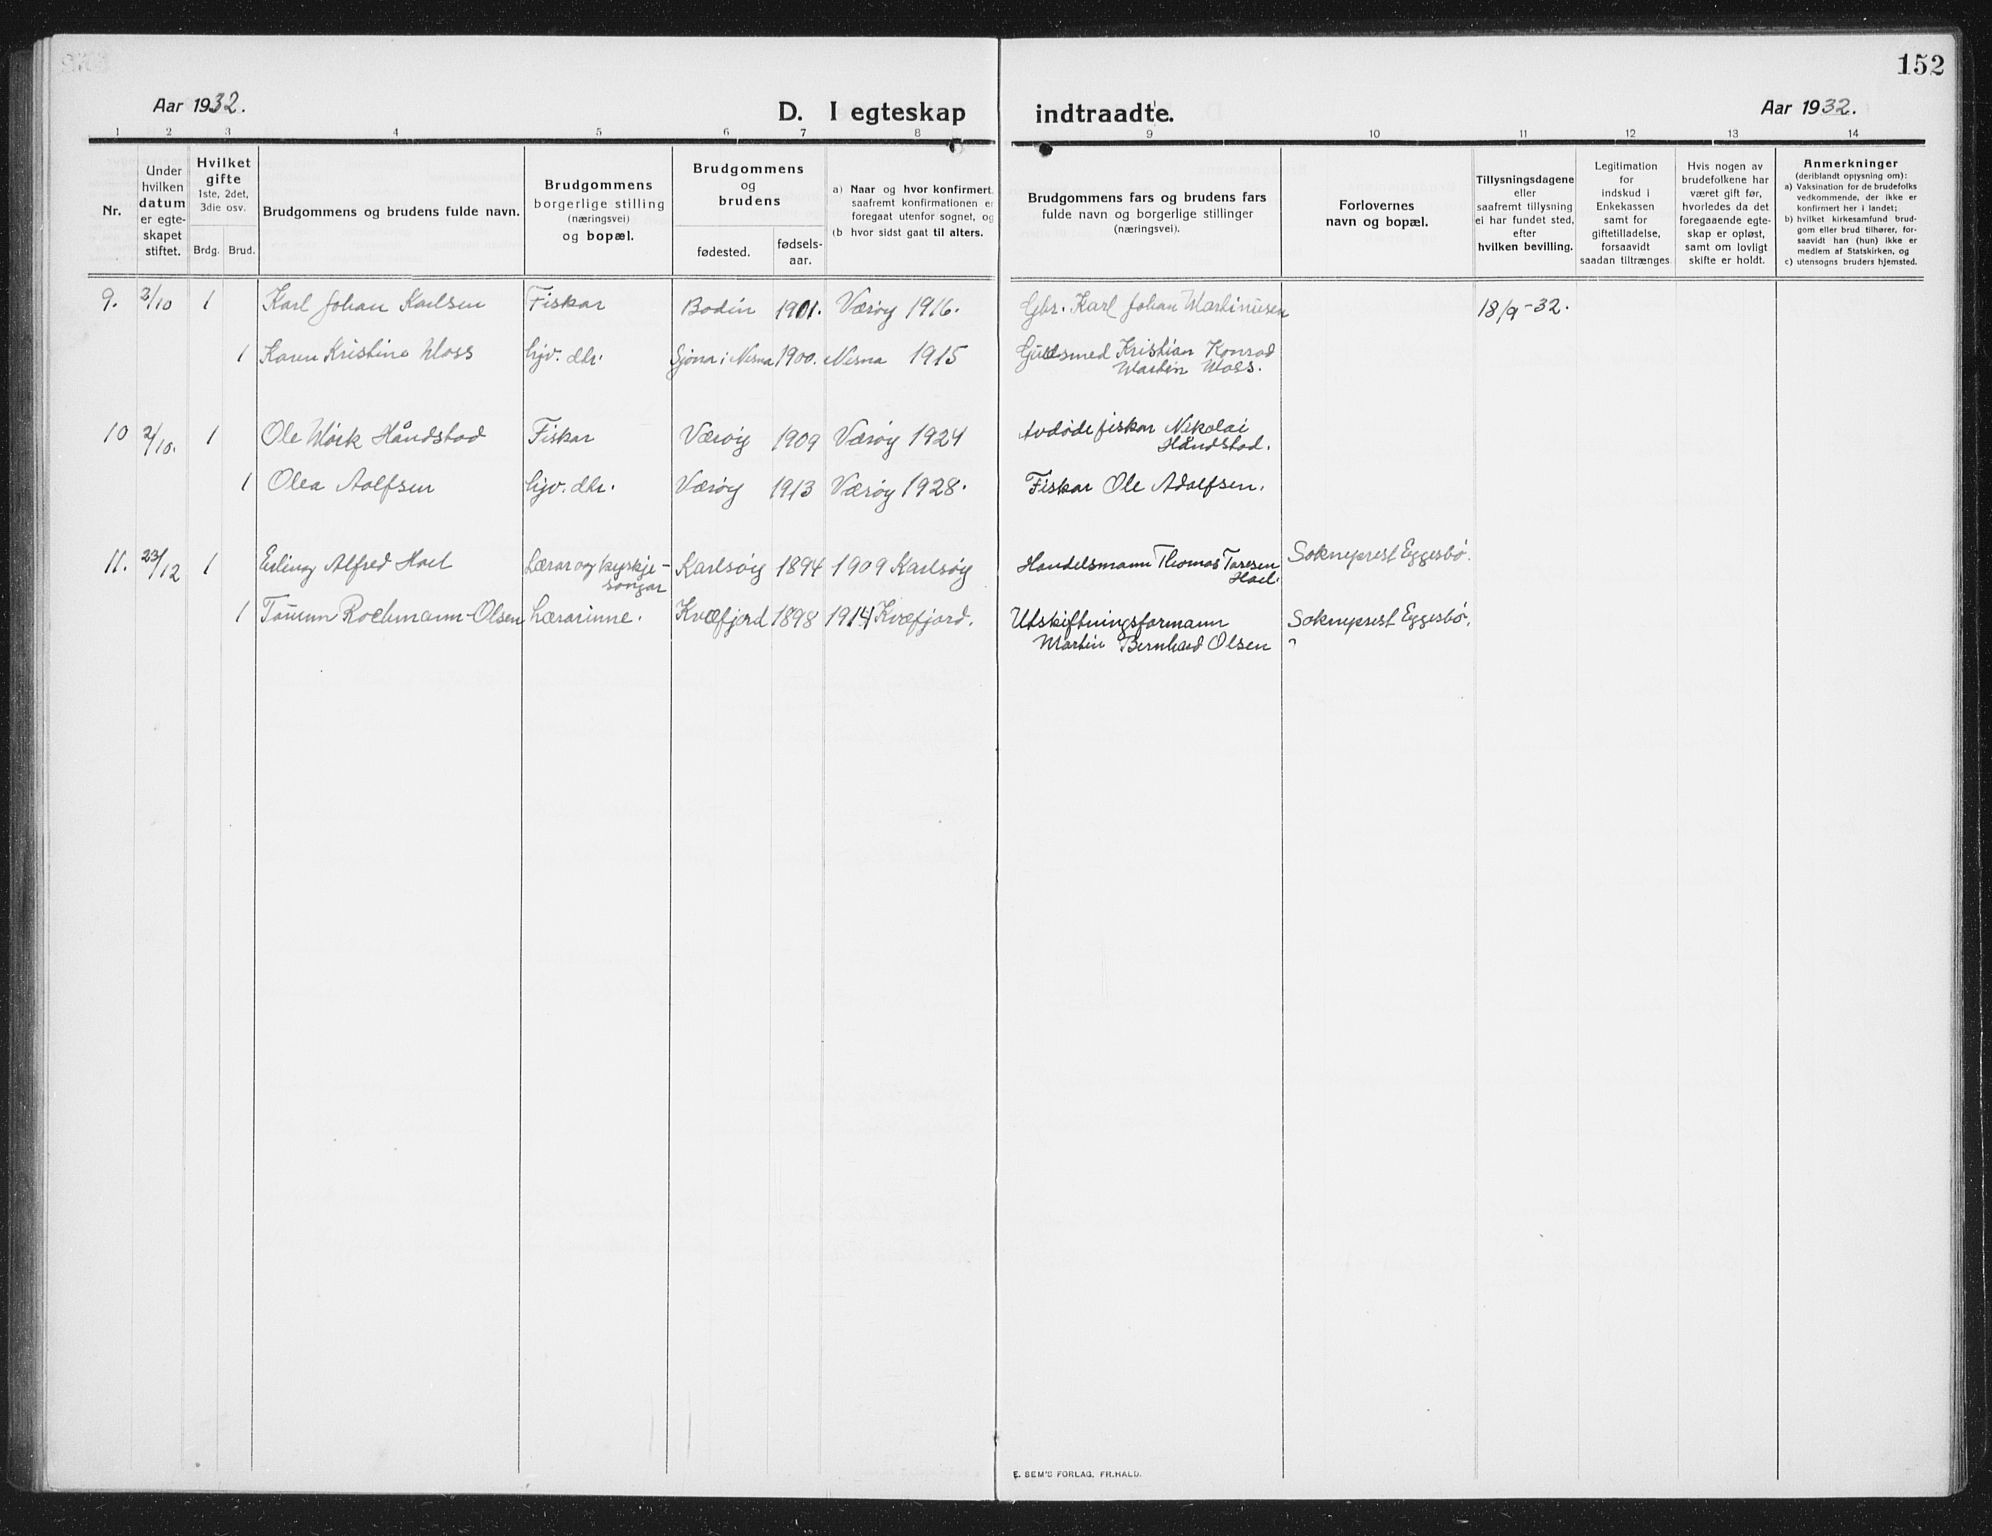 152
Aar 1932.
D. I egteskap indtraadte.
Aar 1932.
1 2 3 4 5 6 7 8 9 10 11 12 13 14
Nr.
Under
hvilken
datum
er egte-
skapet
stiftet.
Hvilket
gifte
1ste, 2det,
3die osv.
Brdg. Brud.
Brudgommens og brudens fulde navn.
Brudgommens
borgerlige stilling
(næringsvei)
og bopæl.
Brudgommens
og
brudens
fødested.
fødsels-
aar.
a) Naar og hvor konfirmert,
saafremt konfirmationen er
foregaat utenfor sognet, og
(b hvor sidst gaat til alters.
Brudgommens fars og brudens fars
fulde navn og borgerlige stillinger
(næringsvei).
Forlovernes
navn og bopæl.
Tillysningsdagene
eller
saafremt tillysning
ei har fundet sted,
efter
hvilken bevilling.
Legitimation
for
indskud i
Enkekassen
samt for
giftetilladelse,
forsaavidt
saadan tiltrænges
Hvis nogen av
brudefolkene har
været gift før,
hvorledes da det
foregaaende egte-
skap er opløst,
samt om lovligt
skifte er holdt.
Anmerkninger
(deriblandt opjysning om):
a) Vaksination for de brudefolks
vedkommende, der ikke er
konfirmert her i landet;
b) hvilket kirkesamfund brud-
gom eller brud tilhører, for-
saavidt han (hun) ikke er
medlem af Statskirken, og
c) utensogns bruders hjemsted.
9. 2/10 1 Karl Johan Karlsen Fiskar Bodin 1901. Værøy 1916. Gbr. Karl Johan Martinusen 18/9-32.
1 Karen Kristine Moss hjv. dtr. Sjona i Nesna 1900. Nesna 1915 Gullsmed Kristian Konrad
Martin Moss.
10 2/10. 1 Ole Mørk Håndstad Fiskar Værøy 1909 Værøy 1924 Avdøde fiskar Nikolai
Håndstad.
1 Olea Aolfsen hjv. dtr. Værøy 1913 Værøy 1928. Fiskar Ole Adolfsen.
11. 23/12 1 Erling Alfred Hoel Lærar og kyrkje-
songar Karlsøy 1894 1909 Karlsøy Handelsmann Thomas Tøresen
Hoel. Sokneprest Eggesbø.
1 Rochmann-Olsen Lærarinne. Kvæfjord 1898 1914 Kvæfjord. Utskiftningsformann
Martin Bernhard Olsen Sokneprest Eggesbø.
"
E. SEM'S FORLAG, FR.HALD.